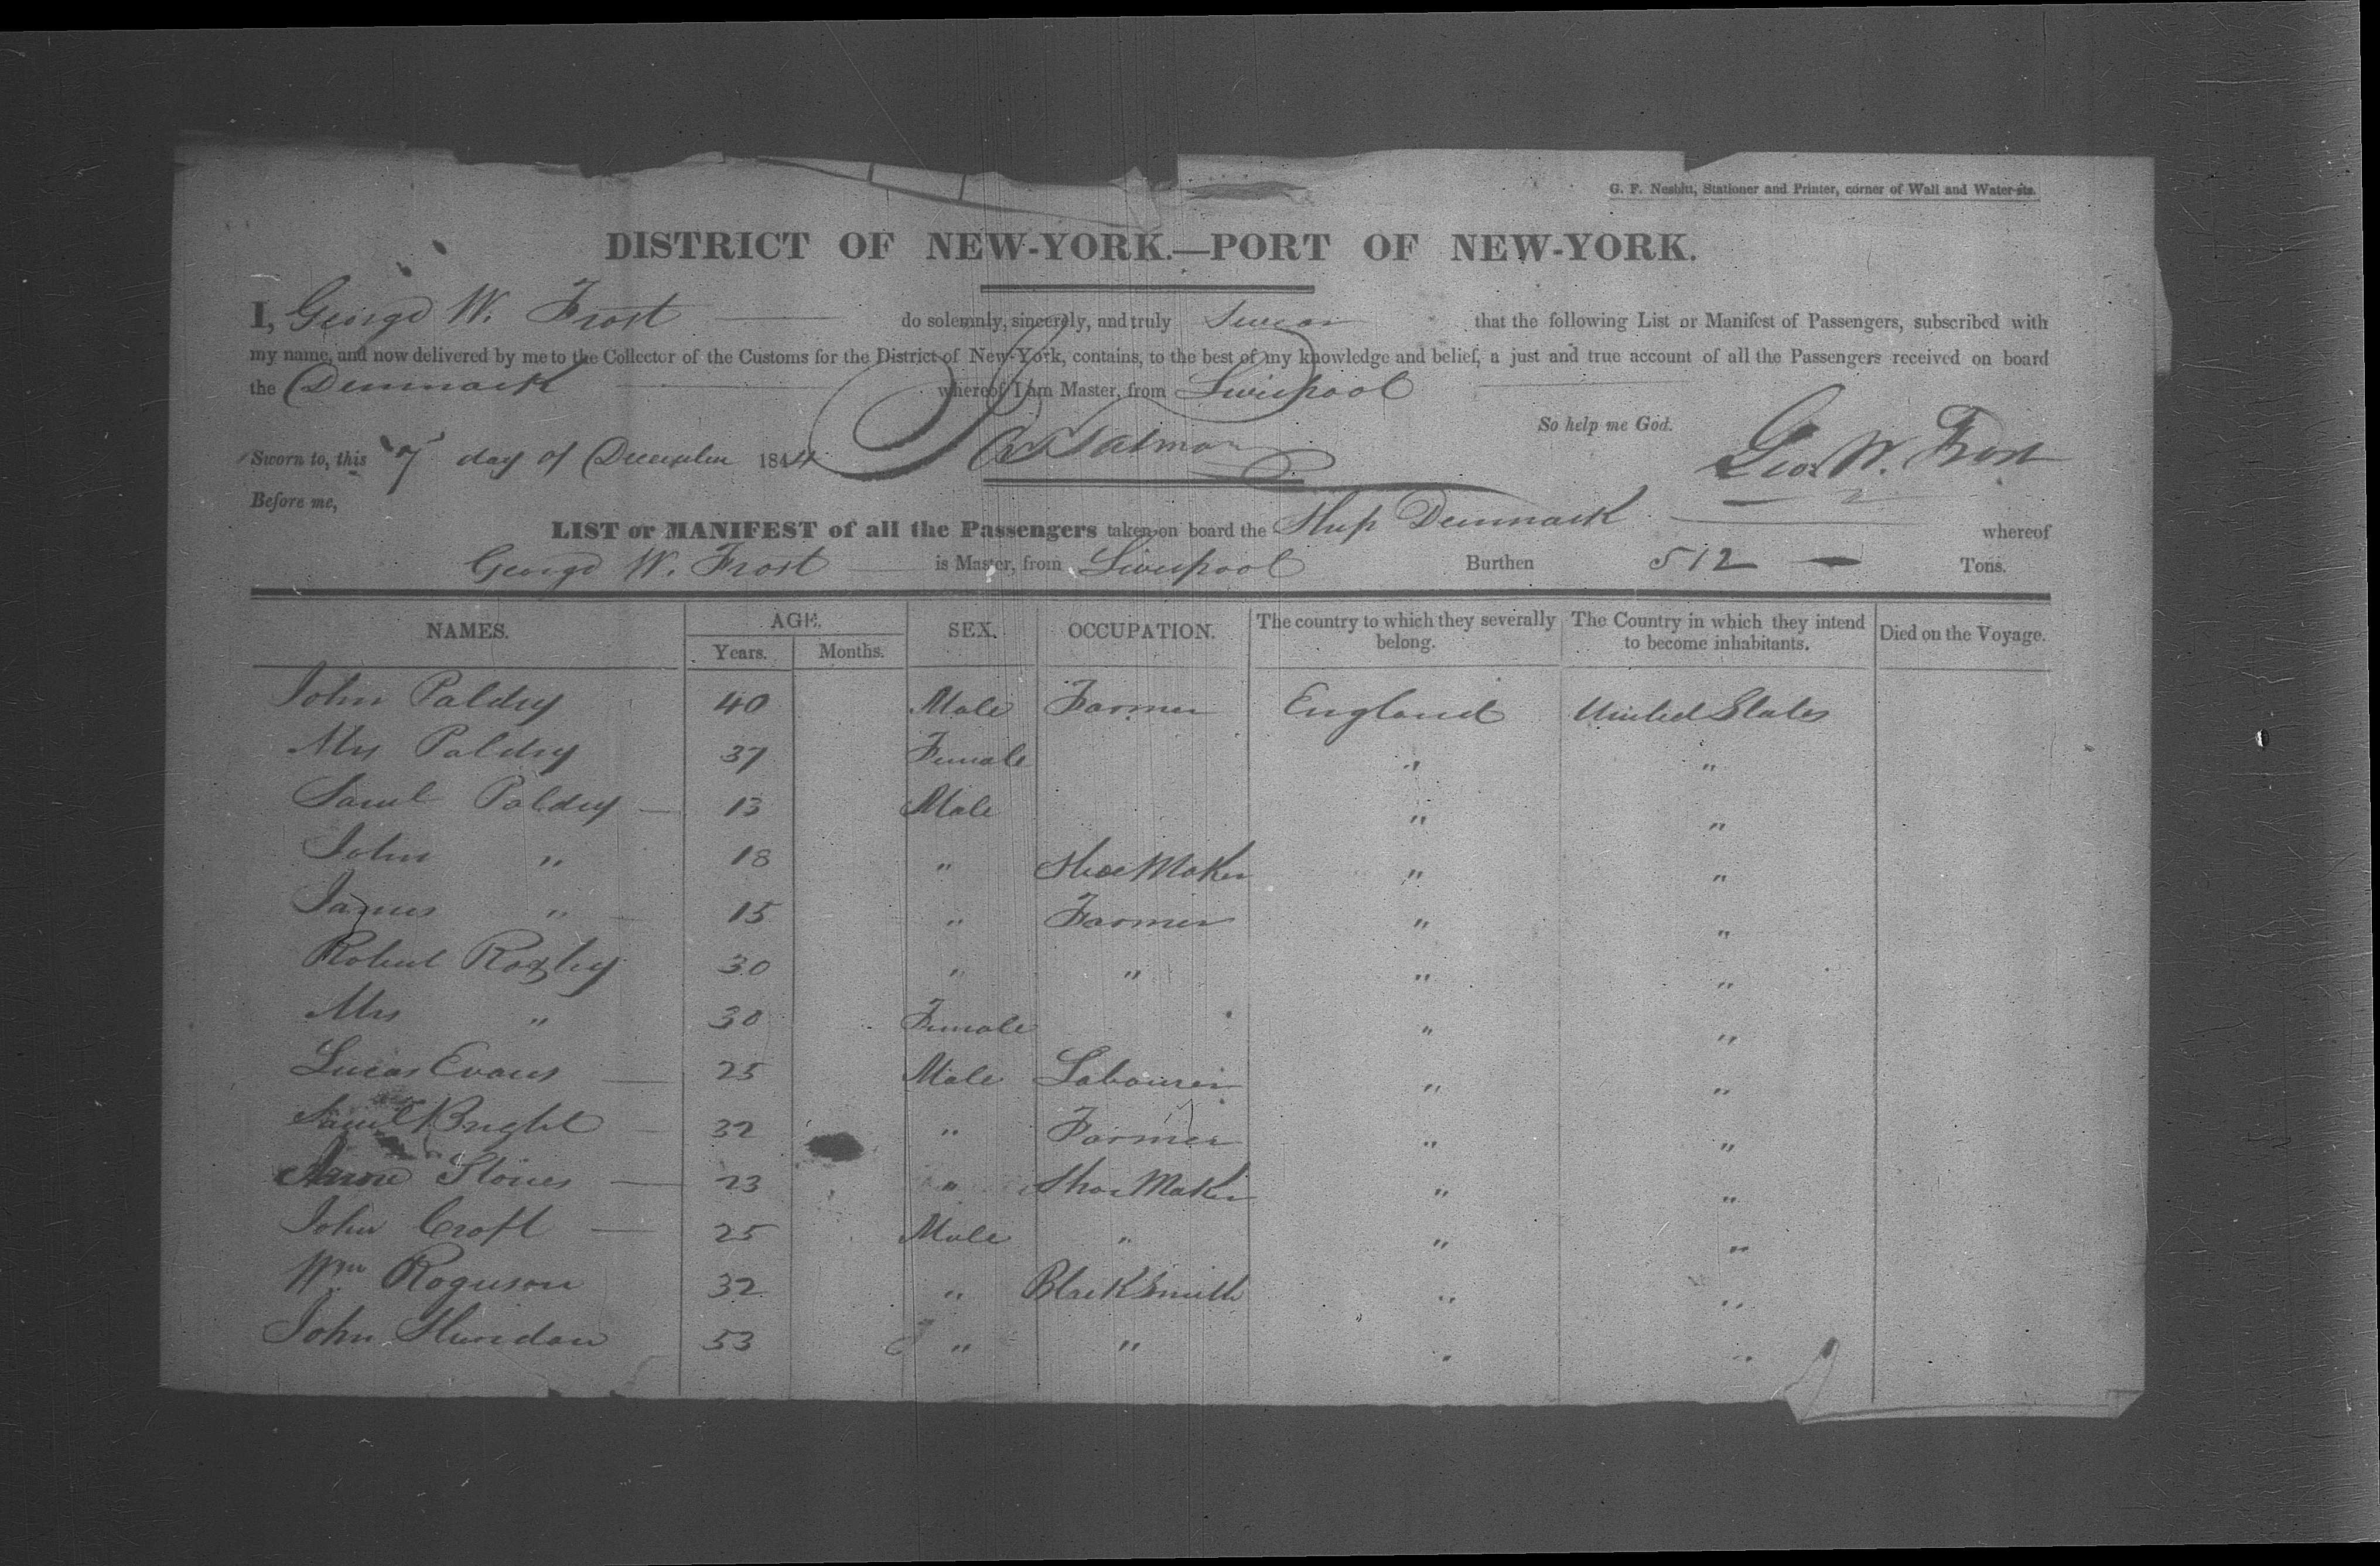 G. F. Nesbitt, Stationer and Printer, corner of Wall and Water-sts.
DISTRICT OF NEW-YORK.—PORT OF NEW-YORK.
I, George W. Frost do solemnly, sincerely, and truly Swear that the following List or Manifest of Passengers, subscribed with
my name, and now delivered by me to the Collector of the Customs for the District of New-York, contains, to the best of my knowledge and belief, a just and true account of all the Passengers received on board
the Denmark whereof I am Master, from Liverpool
So help me God. Geo. W. Frost
Sworn to, this 7 day of December 1844
Before me,
LIST or MANIFEST of all the Passengers taken on board the Ship Denmark whereof
George W. Frost is Master, from Liverpool Burthen 512 Tons.
NAMES. AGE. Years. Months. SEX. OCCUPATION. The country to which they severally belong. The Country in which they intend to become inhabitants. Died on the Voyage.
John Paldry 40 Male Farmer England United States
Mrs Paldry 37 Female " "
Saml Paldry 13 Male " "
John " 18 " Shoe Maker " "
James " 15 " Farmer " "
Robert Roxley 30 " " " "
Mrs " 30 Female " "
Lucas Evans 25 Male Labourer " "
Saml Bright 32 " Farmer " "
Stones 23 " Shoe Maker " "
John Croft 25 Male " " "
Wm Roguson 32 " BlackSmith " "
John Sheridan 53 " " " "